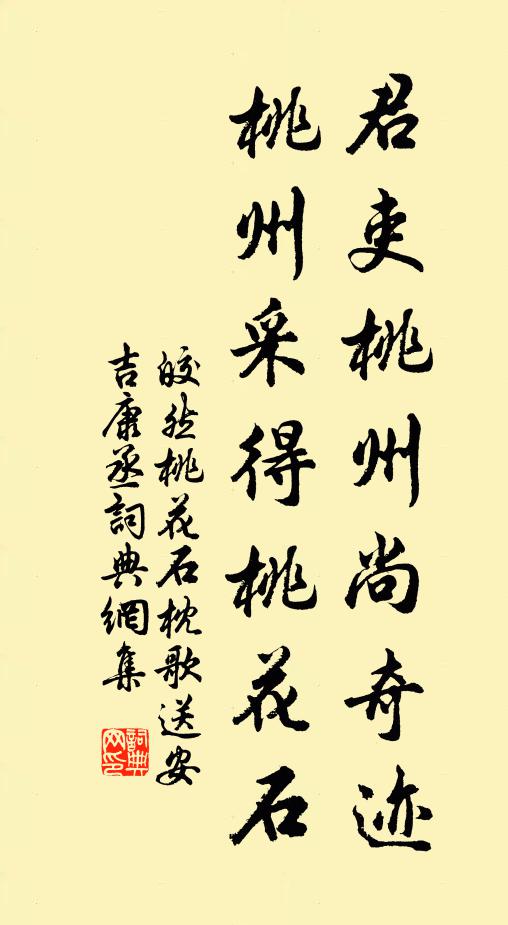 君吏桃州尚奇迹
桃州采得桃花石
皎然桃花石枕歌送安
吉康丞詞典網集
詞典
网印